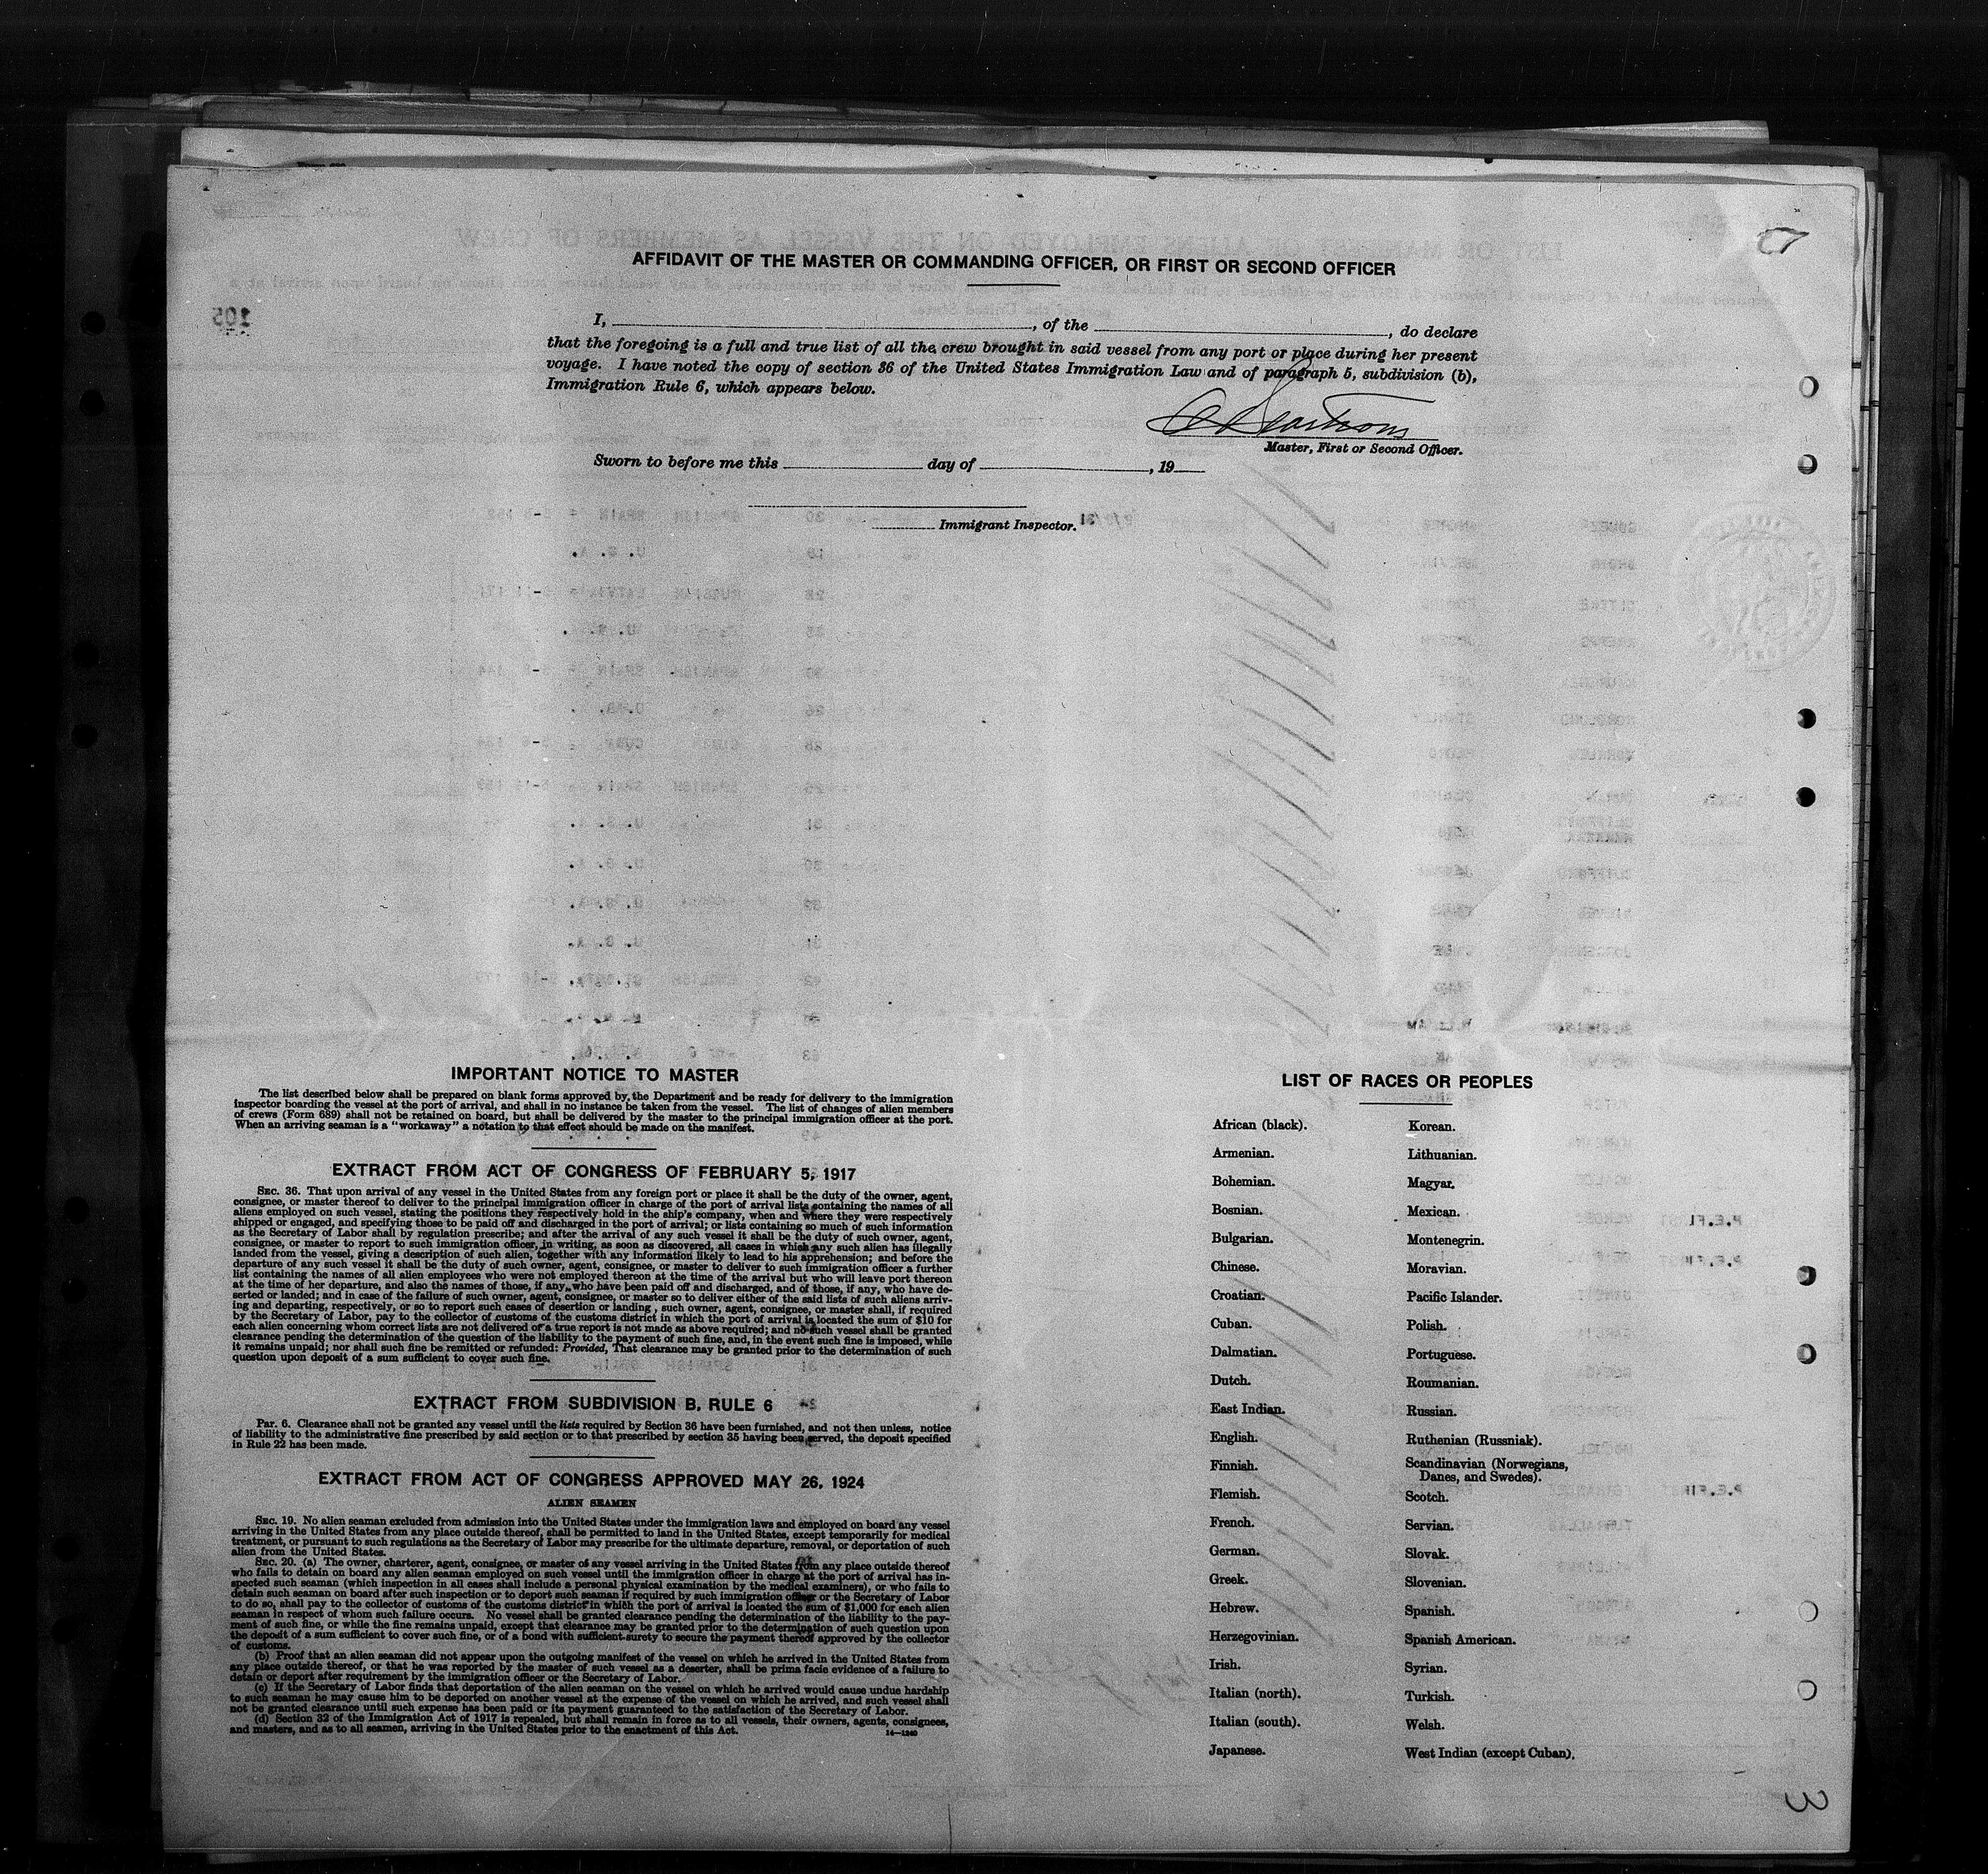 AFFIDAVIT OF THE MASTER OR COMMANDING OFFICER, OR FIRST OR SECOND OFFICER
I, , of the , do declare
that the foregoing is a full and true list of all the crew brought in said vessel from any port or place during her present
voyage. I have noted the copy of section 36 of the United States Immigration Law and of paragraph 5, subdivision (b),
Immigration Rule 6, which appears below.
Master, First or Second Officer.
Sworn to before me this day of , 19
Immigrant Inspector.
IMPORTANT NOTICE TO MASTER
The list described below shall be prepared on blank forms approved by the Department and be ready for delivery to the immigration
inspector boarding the vessel at the port of arrival, and shall in no instance be taken from the vessel. The list of changes of alien members
of crews (Form 689) shall not be retained on board, but shall be delivered by the master to the principal immigration officer at the port.
When an arriving seaman is a "workaway" a notation to that effect should be made on the manifest.
EXTRACT FROM ACT OF CONGRESS OF FEBRUARY 5, 1917
SEC. 36. That upon arrival of any vessel in the United States from any foreign port or place it shall be the duty of the owner, agent,
consignee, or master thereof to deliver to the principal immigration officer in charge of the port of arrival lists containing the names of all
aliens employed on such vessel, stating the positions they respectively hold in the ship's company, when and where they were respectively
shipped or engaged, and specifying those to be paid off and discharged in the port of arrival; or lists containing so much of such information
as the Secretary of Labor shall by regulation prescribe; and after the arrival of any such vessel it shall be the duty of such owner, agent,
consignee, or master to report to such immigration officer, in writing, as soon as discovered, all cases in which any such alien has illegally
landed from the vessel, giving a description of such alien, together with any information likely to lead to his apprehension; and before the
departure of any such vessel it shall be the duty of such owner, agent, consignee, or master to deliver to such immigration officer a further
list containing the names of all alien employees who were not employed thereon at the time of the arrival but who will leave port thereon
at the time of her departure, and also the names of those, if any, who have been paid off and discharged, and of those, if any, who have de-
serted or landed; and in case of the failure of such owner, agent, consignee, or master so to deliver either of the said lists of such aliens arriv-
ing and departing, respectively, or so to report such cases of desertion or landing, such owner, agent, consignee, or master shall, if required
by the Secretary of Labor, pay to the collector of customs of the customs district in which the port of arrival is located the sum of $10 for
each alien concerning whom correct lists are not delivered or a true report is not made as above required; and no such vessel shall be granted
clearance pending the determination of the question of the liability to the payment of such fine, and, in the event such fine is imposed, while
it remains unpaid; nor shall such fine be remitted or refunded: Provided, That clearance may be granted prior to the determination of such
question upon deposit of a sum sufficient to cover such fine.
EXTRACT FROM SUBDIVISION B, RULE 6
Par. 6. Clearance shall not be granted any vessel until the lists required by Section 36 have been furnished, and not then unless, notice
of liability to the administrative fine prescribed by said section or to that prescribed by section 35 having been served, the deposit specified
in Rule 22 has been made.
EXTRACT FROM ACT OF CONGRESS APPROVED MAY 26, 1924
ALIEN SEAMEN
SEC. 19. No alien seaman excluded from admission into the United States under the immigration laws and employed on board any vessel
arriving in the United States from any place outside thereof, shall be permitted to land in the United States, except temporarily for medical
treatment, or pursuant to such regulations as the Secretary of Labor may prescribe for the ultimate departure, removal, or deportation of such
alien from the United States.
SEC. 20. (a) The owner, charterer, agent, consignee, or master of any vessel arriving in the United States from any place outside thereof
who fails to detain on board any alien seaman employed on such vessel until the immigration officer in charge at the port of arrival has in-
spected such seaman (which inspection in all cases shall include a personal physical examination by the medical examiners), or who fails to
detain such seaman on board after such inspection or to deport such seaman if required by such immigration officer or the Secretary of Labor
to do so, shall pay to the collector of customs of the customs district in which the port of arrival is located the sum of $1,000 for each alien
seaman in respect of whom such failure occurs. No vessel shall be granted clearance pending the determination of the liability to the pay-
ment of such fine, or while the fine remains unpaid, except that clearance may be granted prior to the determination of such question upon
the deposit of a sum sufficient to cover such fine, or of a bond with sufficient surety to secure the payment thereof approved by the collector
of customs.
(b) Proof that an alien seaman did not appear upon the outgoing manifest of the vessel on which he arrived in the United States from
any place outside thereof, or that he was reported by the master of such vessel as a deserter, shall be prima facie evidence of a failure to
detain or deport after requirement by the immigration officer or the Secretary of Labor.
(c) If the Secretary of Labor finds that deportation of the alien seaman on the vessel on which he arrived would cause undue hardship
to such seaman he may cause him to be deported on another vessel at the expense of the vessel on which he arrived, and such vessel shall
not be granted clearance until such expense has been paid or its payment guaranteed to the satisfaction of the Secretary of Labor.
(d) Section 32 of the Immigration Act of 1917 is repealed, but shall remain in force as to all vessels, their owners, agents, consignees,
and masters, and as to all seamen, arriving in the United States prior to the enactment of this Act.
14—1240
LIST OF RACES OR PEOPLES
African (black).
Armenian.
Bohemian.
Bosnian.
Bulgarian.
Chinese.
Croatian.
Cuban.
Dalmatian.
Dutch.
East Indian.
English.
Finnish.
Flemish.
French.
German.
Greek.
Hebrew.
Herzegovinian.
Irish.
Italian (north).
Italian (south).
Japanese.
Korean.
Lithuanian.
Magyar.
Mexican.
Montenegrin.
Moravian.
Pacific Islander.
Polish.
Portuguese.
Roumanian.
Russian.
Ruthenian (Russniak).
Scandinavian (Norwegians,
Danes, and Swedes).
Scotch.
Servian.
Slovak.
Slovenian.
Spanish.
Spanish American.
Syrian.
Turkish.
Welsh.
West Indian (except Cuban).
3